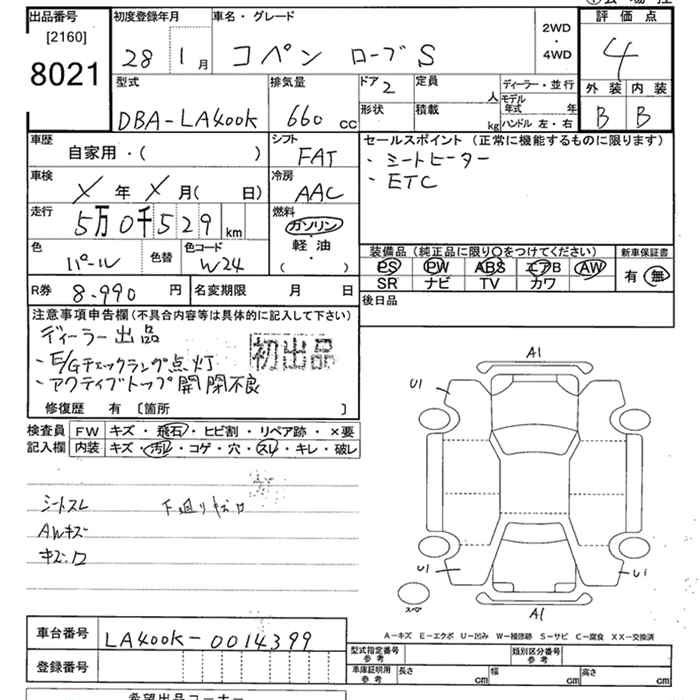 出品番号
[2160]
8021
初度登録年月
28 1月
車名・グレード
コペン ローブS
2WD
・
4WD
評価点
4
外装 内装
B B
型式
DBA-LA400K
排気量
660 cc
ドア 2
形状
定員
人
積載
kg
ディーラー・並行
モデル年式 年
ハンドル 左・右
車歴
自家用・( )
シフト
FAT
車検
X年X月( 日)
冷房
AAC
走行
5万0千529 km
燃料
ガソリン
軽油
( ・ )
色
パール
色替
色コード
W24
セールスポイント (正常に機能するものに限ります)
・シートヒーター
・ETC
装備品 (純正品に限り○をつけてください)
PS PW ABS エアB AW
SR ナビ TV カワ
新車保証書
有・無
R券 8.990 円
名変期限 月 日
後日品
注意事項申告欄(不具合内容等は具体的に記入して下さい)
ディーラー出品
・E/Gチェックランプ点灯
・アクティブトップ開閉不良
初出品
修復歴 有 [箇所 ]
検査員
記入欄
FW キズ・飛石・ヒビ割・リペア跡・×要
内装 キズ・汚レ・コゲ・穴・スレ・キレ・破レ
シートスレ
下廻り
AWキズ
A1
U1
U1
U1
A1
スペア
A-キズ E-エクボ U-凹み W-補修跡 S-サビ C-腐食 XX-交換済
車台番号
LA400K-0014399
登録番号
型式指定番号
参考
類別区分番号
参考
車庫証明用
参考
長さ cm
幅 cm
高さ cm
希望出品コーナー